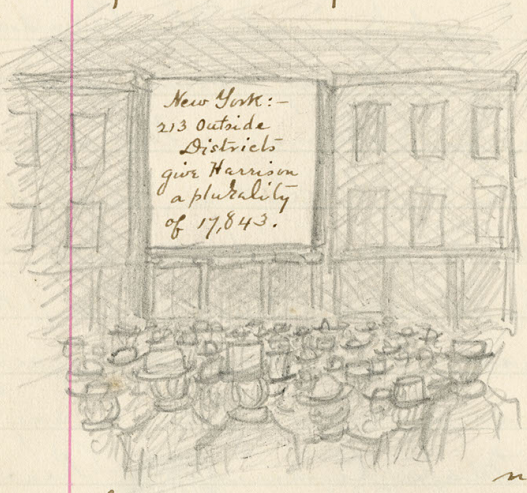 New York:-
213 Outside
Districts
give Harrison
a plurality
of 17,843.